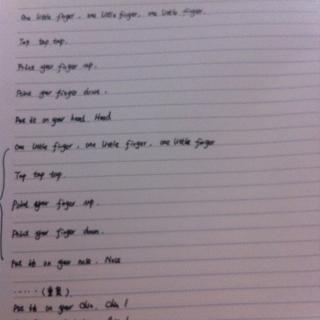 One little finger, one little finger, one little finger.
Tap tap tap.
Point your finger up.
Point your finger down.
Put it on your head. Head
One little finger, one little finger, one little finger
Tap tap tap.
Point your finger up.
Point your finger down.
Put it on your nose. Nose
......(重复)
Put it on your chin. Chin!